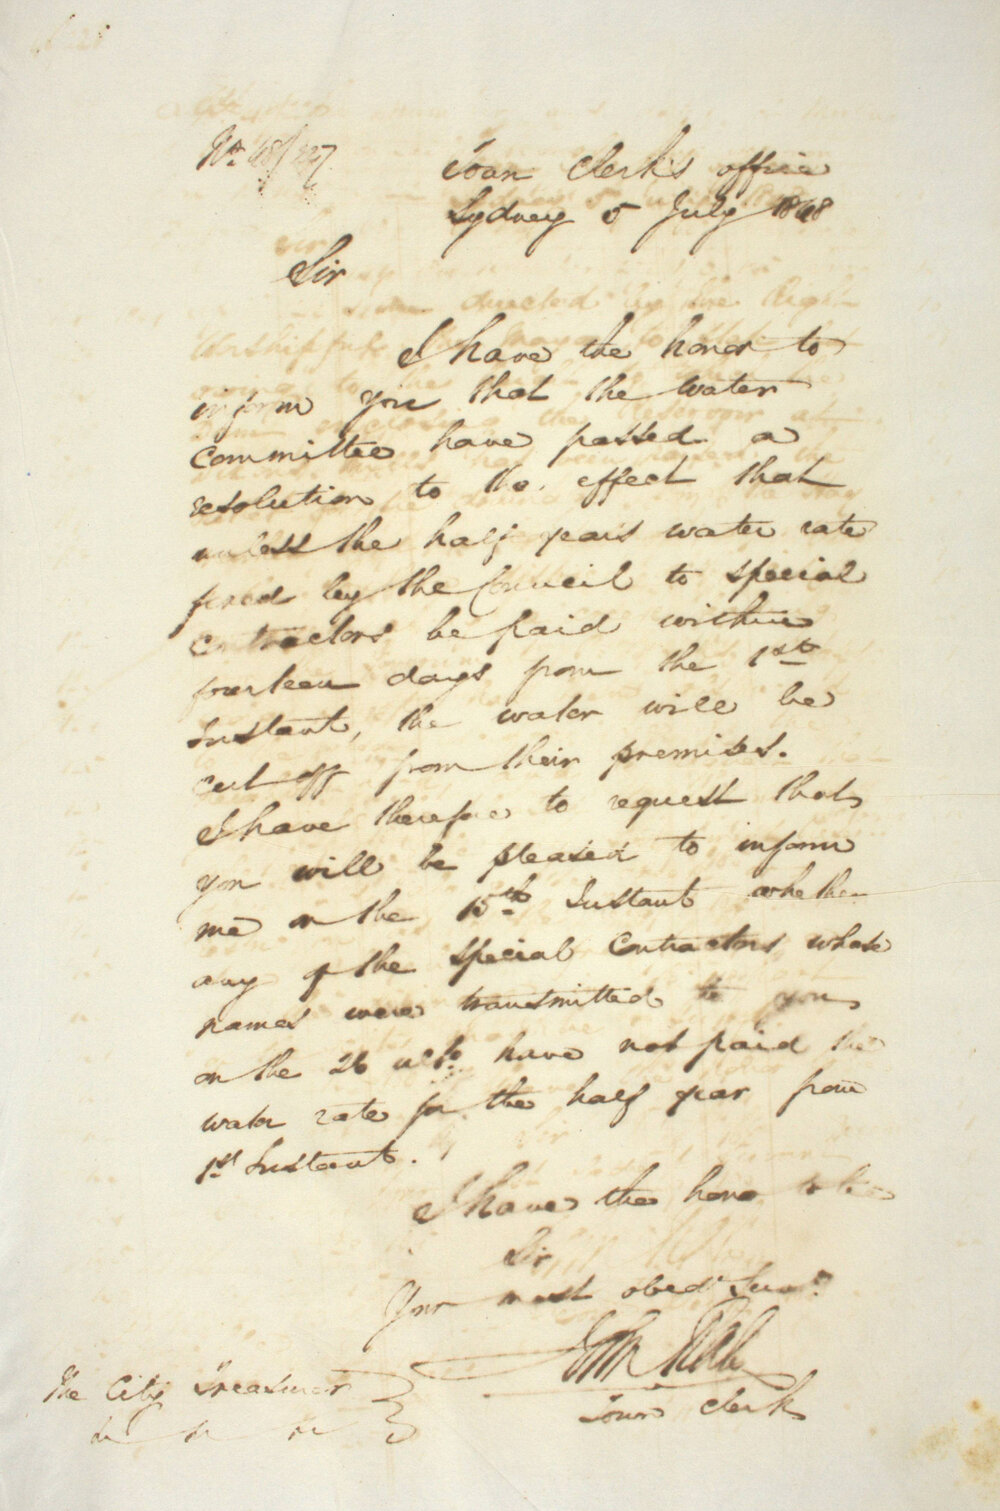 No. 48/227
Town Clerk's office
Sydney 5 July 1848
Sir
I have the honor to
inform you that the Water
Committee have passed a
resolution to the effect that
unless the half years water rate
fixed by the Council to special
contractors be paid within
fourteen days from the 1st
Instant, the water will be
cut off from their premises.
I have therefore to request that
you will be pleased to inform
me on the 15th Instant whether
any of the special contractors whose
names were transmitted to you
on the 26 ulto. have not paid the
water rate for the half year from
1st Instant.
I have the honor to be
Sir
Your most obedt Servt
John
Town Clerk
The City Treasurer